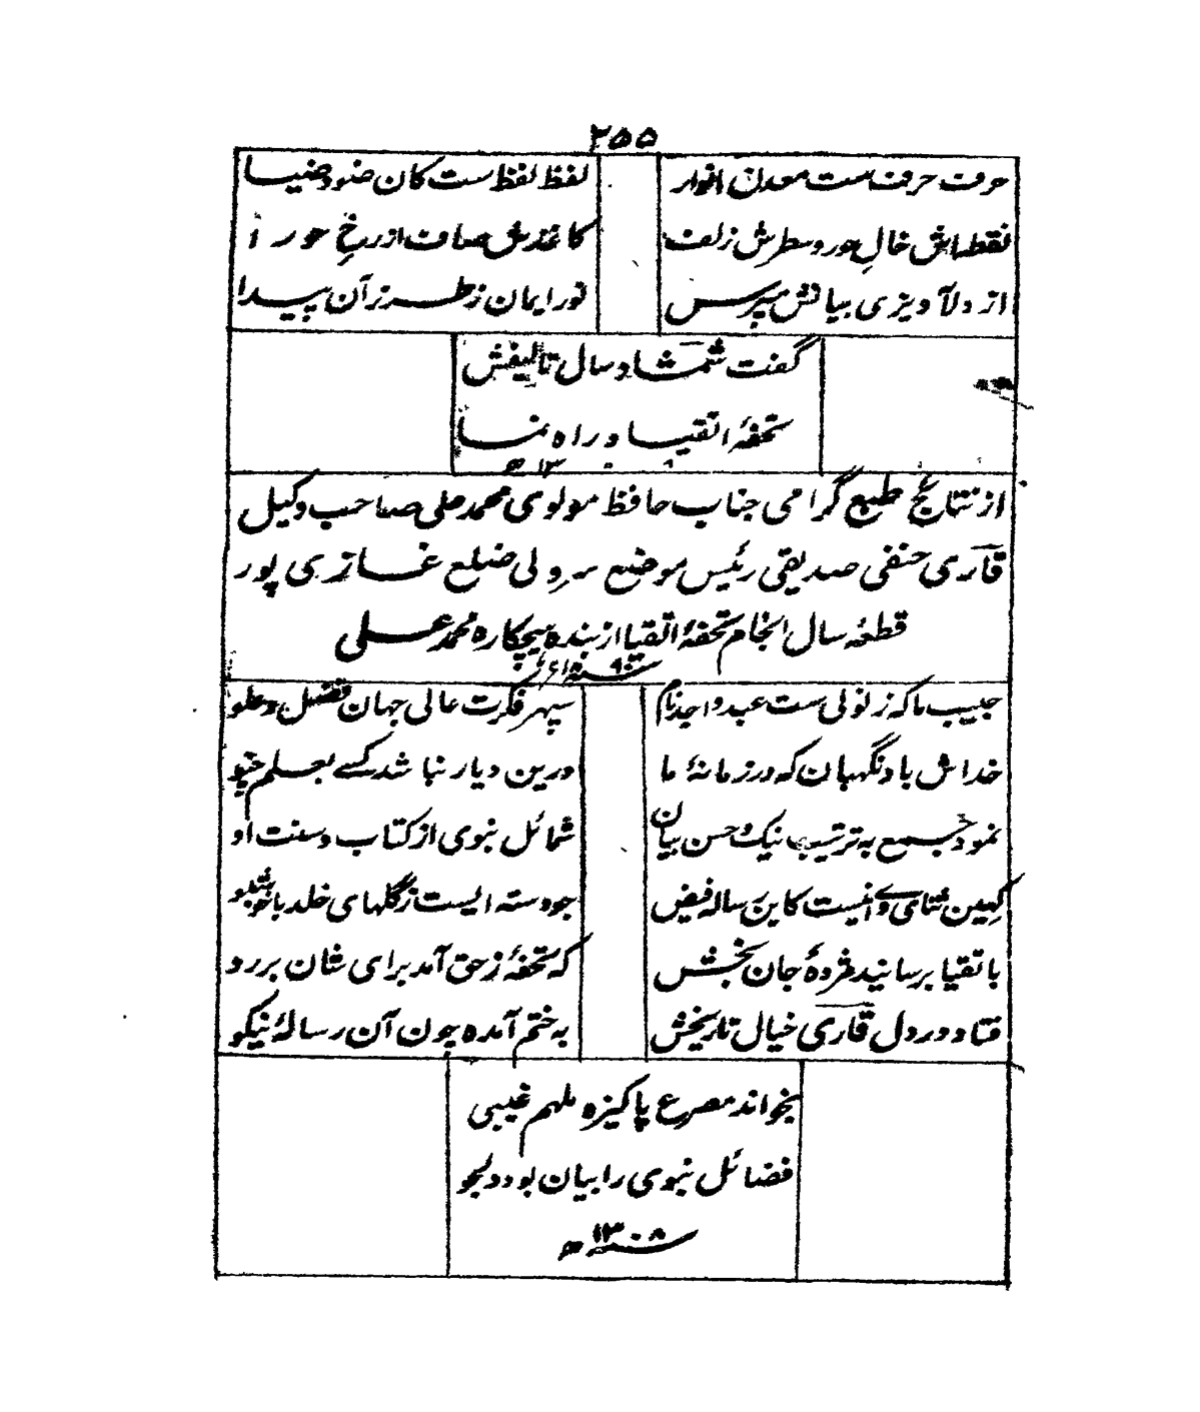 ۲۵۵
حرف حرف ست معدن انوار لفظ لفظ ست کان ضؤ و ضیا
نقطہایش خالِ حور و سطرش زلف کاغذش صاف از رخِ حورا
از دلآویزی بیانش مپرس نور ایمان ز طرز آن پیدا
گفت شمشاد سال تالیفش
تحفۂ اتقیا و راہ نما
۱۳۰۸ھ
از نتائج طبع گرامی جناب حافظ مولوی محمد علی صاحب وکیل
قاری حنفی صدیقی رئیس موضع ولی ضلع غازی پور
قطعہ سال انجام تحفۂ اتقیا از بندہ ہیچکارہ محمد علی
حبیب ما کہ ز نولی ست عبد واجد نام سپہر فکرت عالی جہان فضل و علو
خداش باد نگہبان کہ در زمانۂ ما درین دیار نباشد کسے بعلم چنو
نمود جمع بہ ترتیب نیک و حسن بیان شمائل نبوی از کتاب و سنت او
کمین ثنای وے اینست کاین رسالہ فیض چو دستہ ایست ز گلہای خلد با خوشبو
باتقیا برسانید مژدۂ جان بخش کہ تحفۂ ز حق آمد برای شان بررو
فتاد در دل قاری خیال تاریخش بہ ختم آمدہ چون آن رسالۂ نیکو
بخواند مصرع پاکیزہ ملہم غیبی
فضائل نبوی را بیان بود دلجو
۱۳۰۸ھ